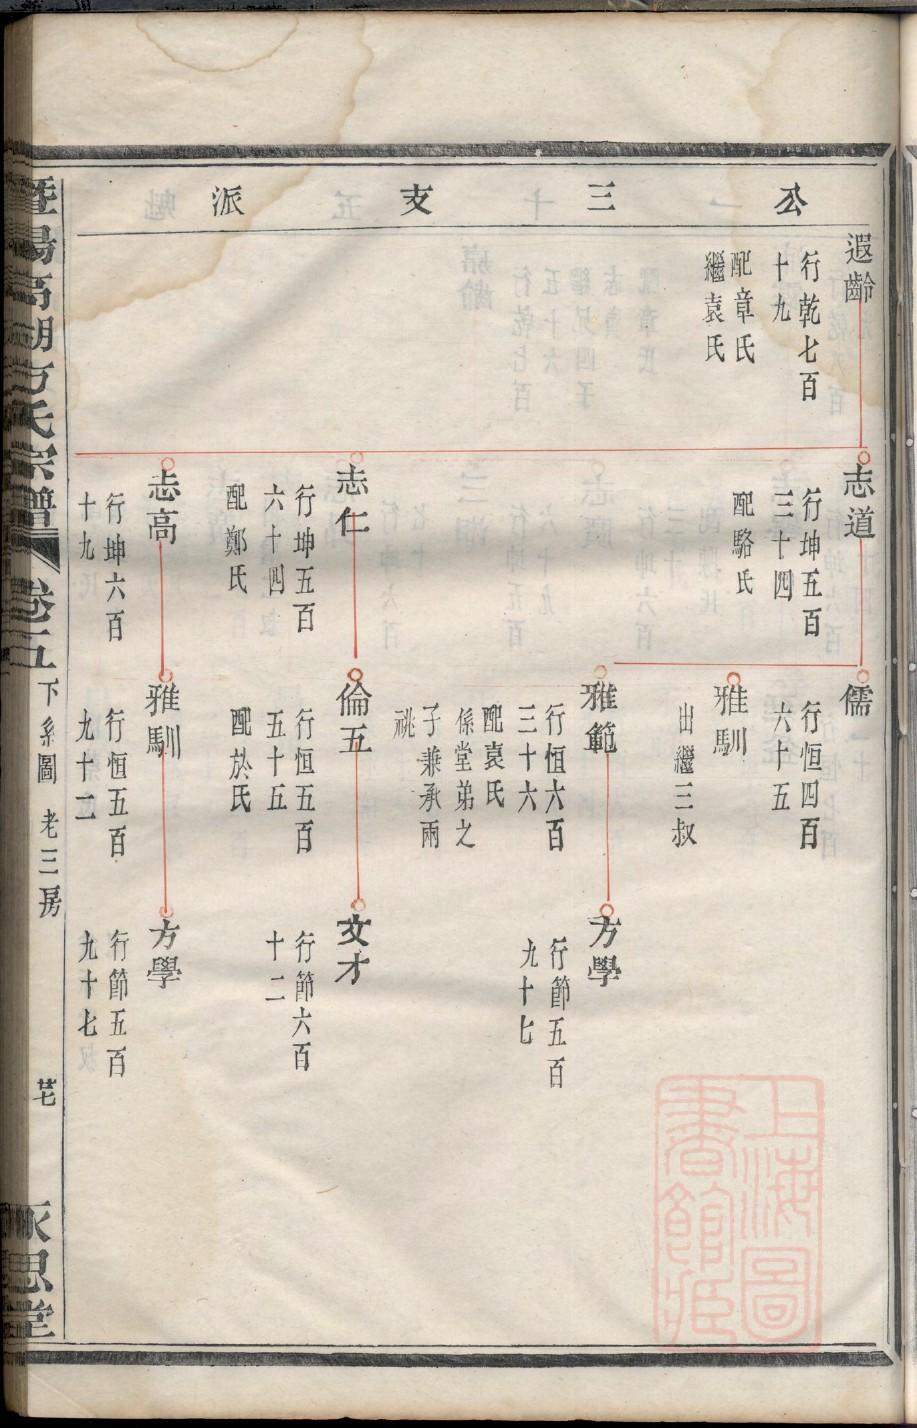 公三支派
遐齡
行乾七百
十九
配章氏
繼袁氏
志道
行坤五百
三十四
配駱氏
志仁
行坤五百
六十四
配鄭氏
志高
行坤六百
十九
儒
行恒四百
六十五
雅馴
出繼三叔
雅範
行恒六百
三十六
配袁氏
係堂弟之
子兼承兩
祧
倫五
行恒五百
五十五
配於氏
雅馴
行恒五百
九十二
方學
行節五百
九十七
文才
行節六百
十二
方學
行節五百
九十七
暨陽高湖方氏宗譜
卷二五
下系圖 老三房
芼
永思堂
上海圖
書館藏